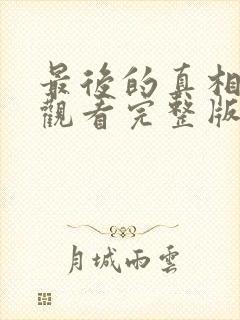 最後的真相
觀看完整版
月城雨雲